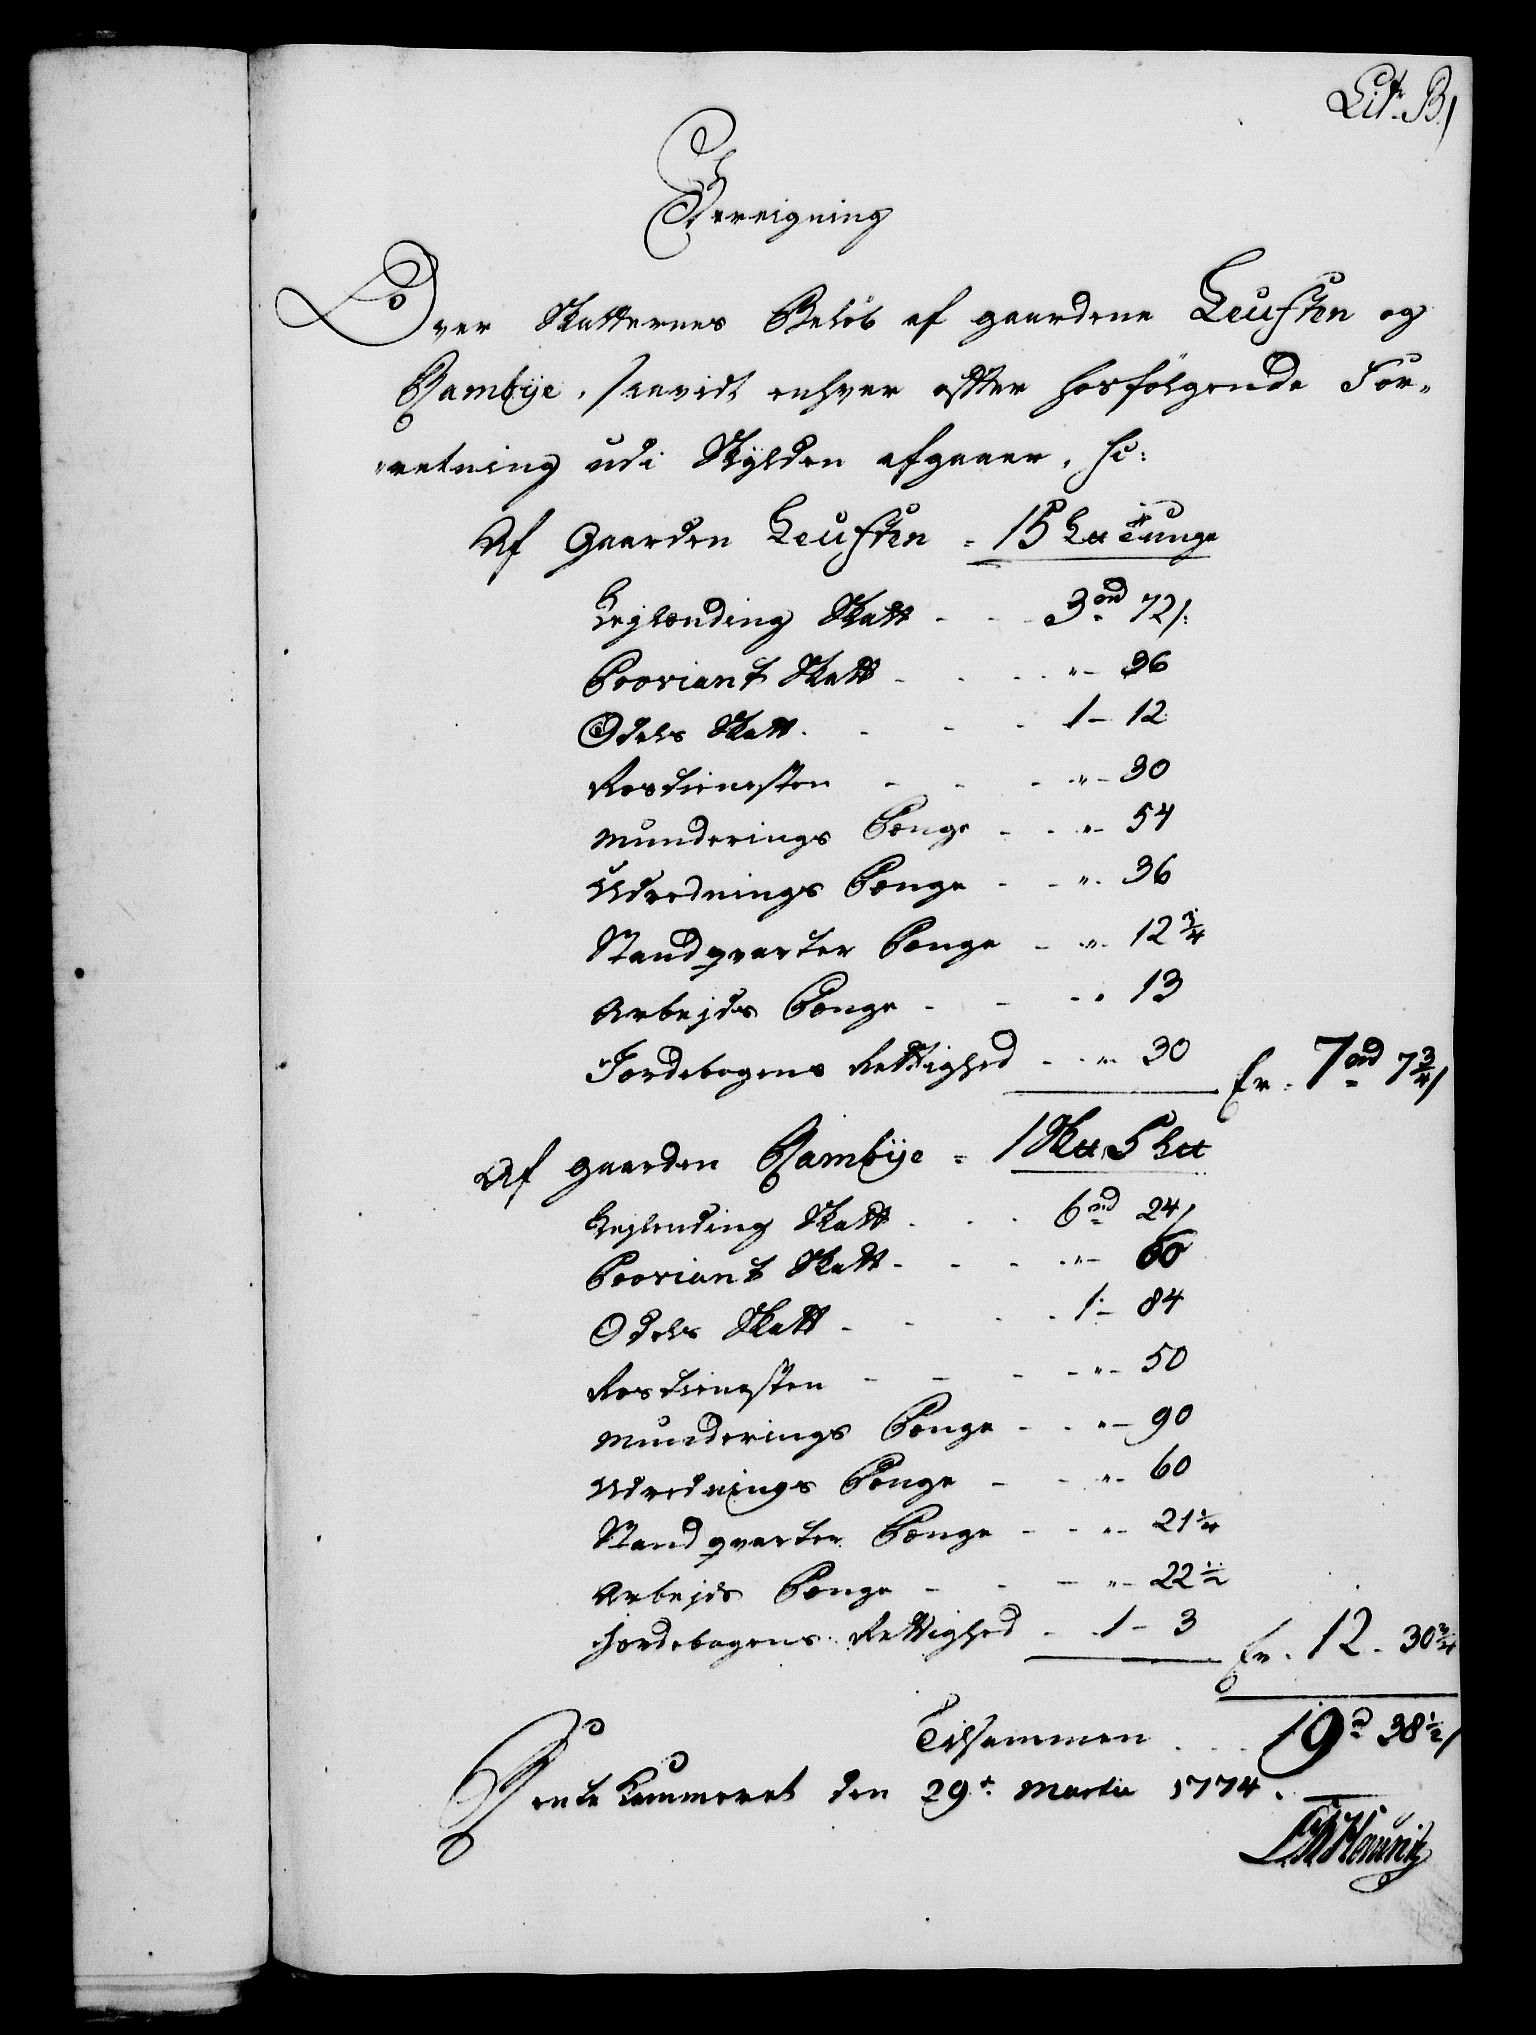 Lit. B.
Bereigning
Over Skatternes Beløb af gaardene Leuften og
Qambÿe, saavidt enhver efter hosfølgende For-
retning udi Skylden afgaaer, sc:
Af Gaarden Leuften = 15 L𝔱𝔱 Tunge
Leylænding Skatt - - 3 rd 72 s:
Proviant Skatt - - - " - 36
Odels Skatt - - - 1 - 12
Rostienesten - - - " - 30
Munderings Penge - - " - 54
Udrednings Penge - - " - 36
Standqvarter Penge - " - 12 3/4
Arbejds Penge - - - " 13
Jordebogens Rettighed - - " - 30 Er = 7 rd 7 3/4 s
Af gaarden Qambÿe = 1 Sk𝔱𝔱 5 L𝔱𝔱
Leylending Skatt - - - 6 rd 24 s
Proviant Skatt - - - " - 60
Odels Skatt - - - 1 - 84
Rostienesten - - - " - 50
Munderings Penge - - " - 90
Udrednings Penge - - " - 60
Standqvarter Penge - - " - 21 1/4
Arbejds Penge - - - " - 22 1/2
Jordebogens Rettighed - - 1 - 3 Er - 12 - 30 3/4
Tilsammen - - - 19 rd 38 1/2 s
Rente Kammeret den 29t Martii 1774.